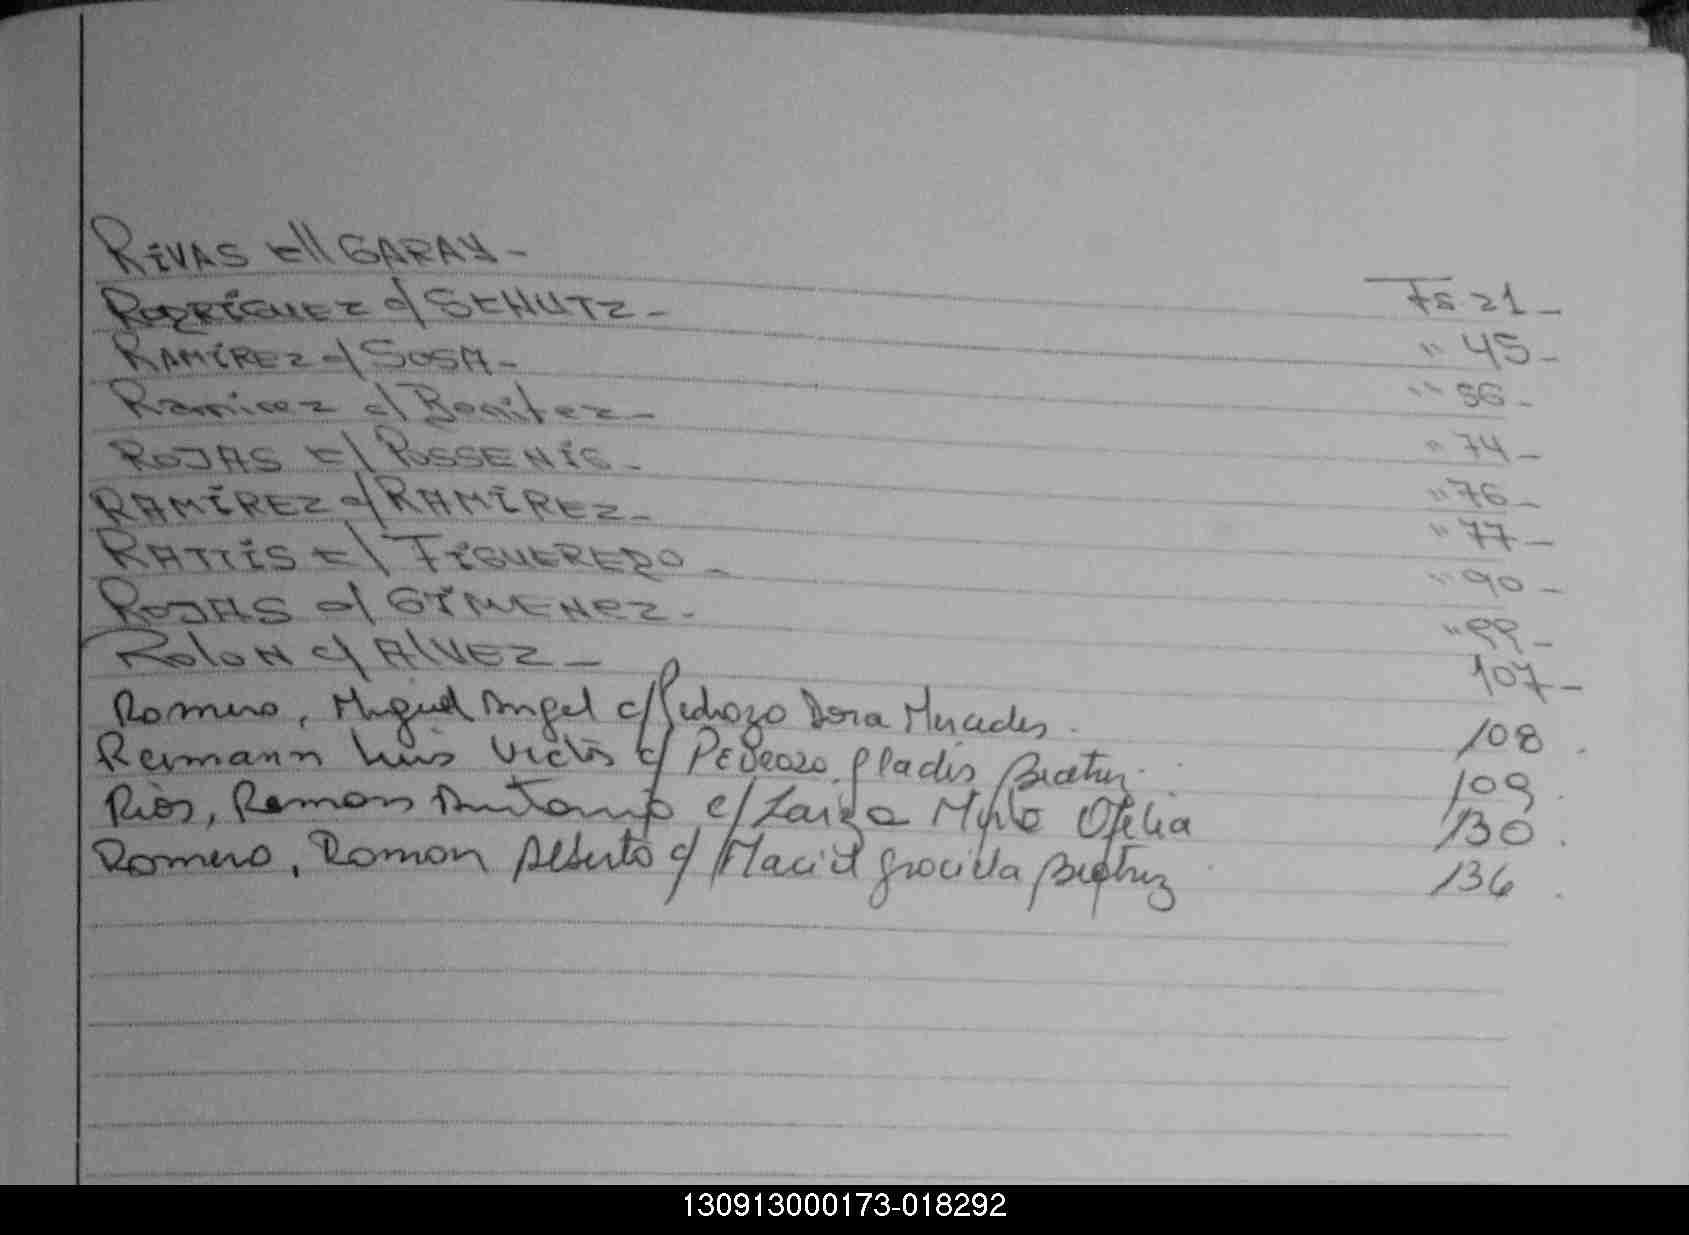 RIVAS c// GARAY - Fs 21 -
RODRÍGUEZ c/ SCHUTZ - " 45 -
RAMÍREZ c/ SOSA - " 56 -
Ramirez c/ Benitez - " 74 -
ROJAS c/ POSSENIS - " 76 -
RAMÍREZ c/ RAMÍREZ - " 77 -
RATTIS c/ FIGUEREDO - " 90 -
ROJAS c/ GIMENEZ - " 99 -
Rolon c/ AlVEZ - 107 -
Romero, Miguel Angel c/ Pedrozo Dora Mercedes. 108.
Reimann Luis Victor c/ Pedrozo Gladis Beatriz. 109.
Rios, Ramon Antonio c/ Ofelia 130.
Romero, Ramon Alberto c/ Maciel Graciela Beatriz. 136.
130913000173-018292